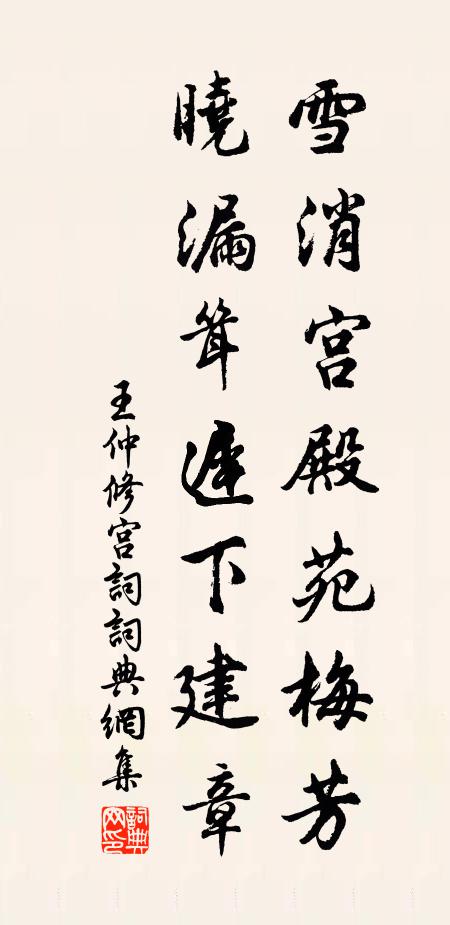 雪消宫殿苑梅芳
曉漏遲下建章
王仲修宫詞詞典網集
詞典
网印